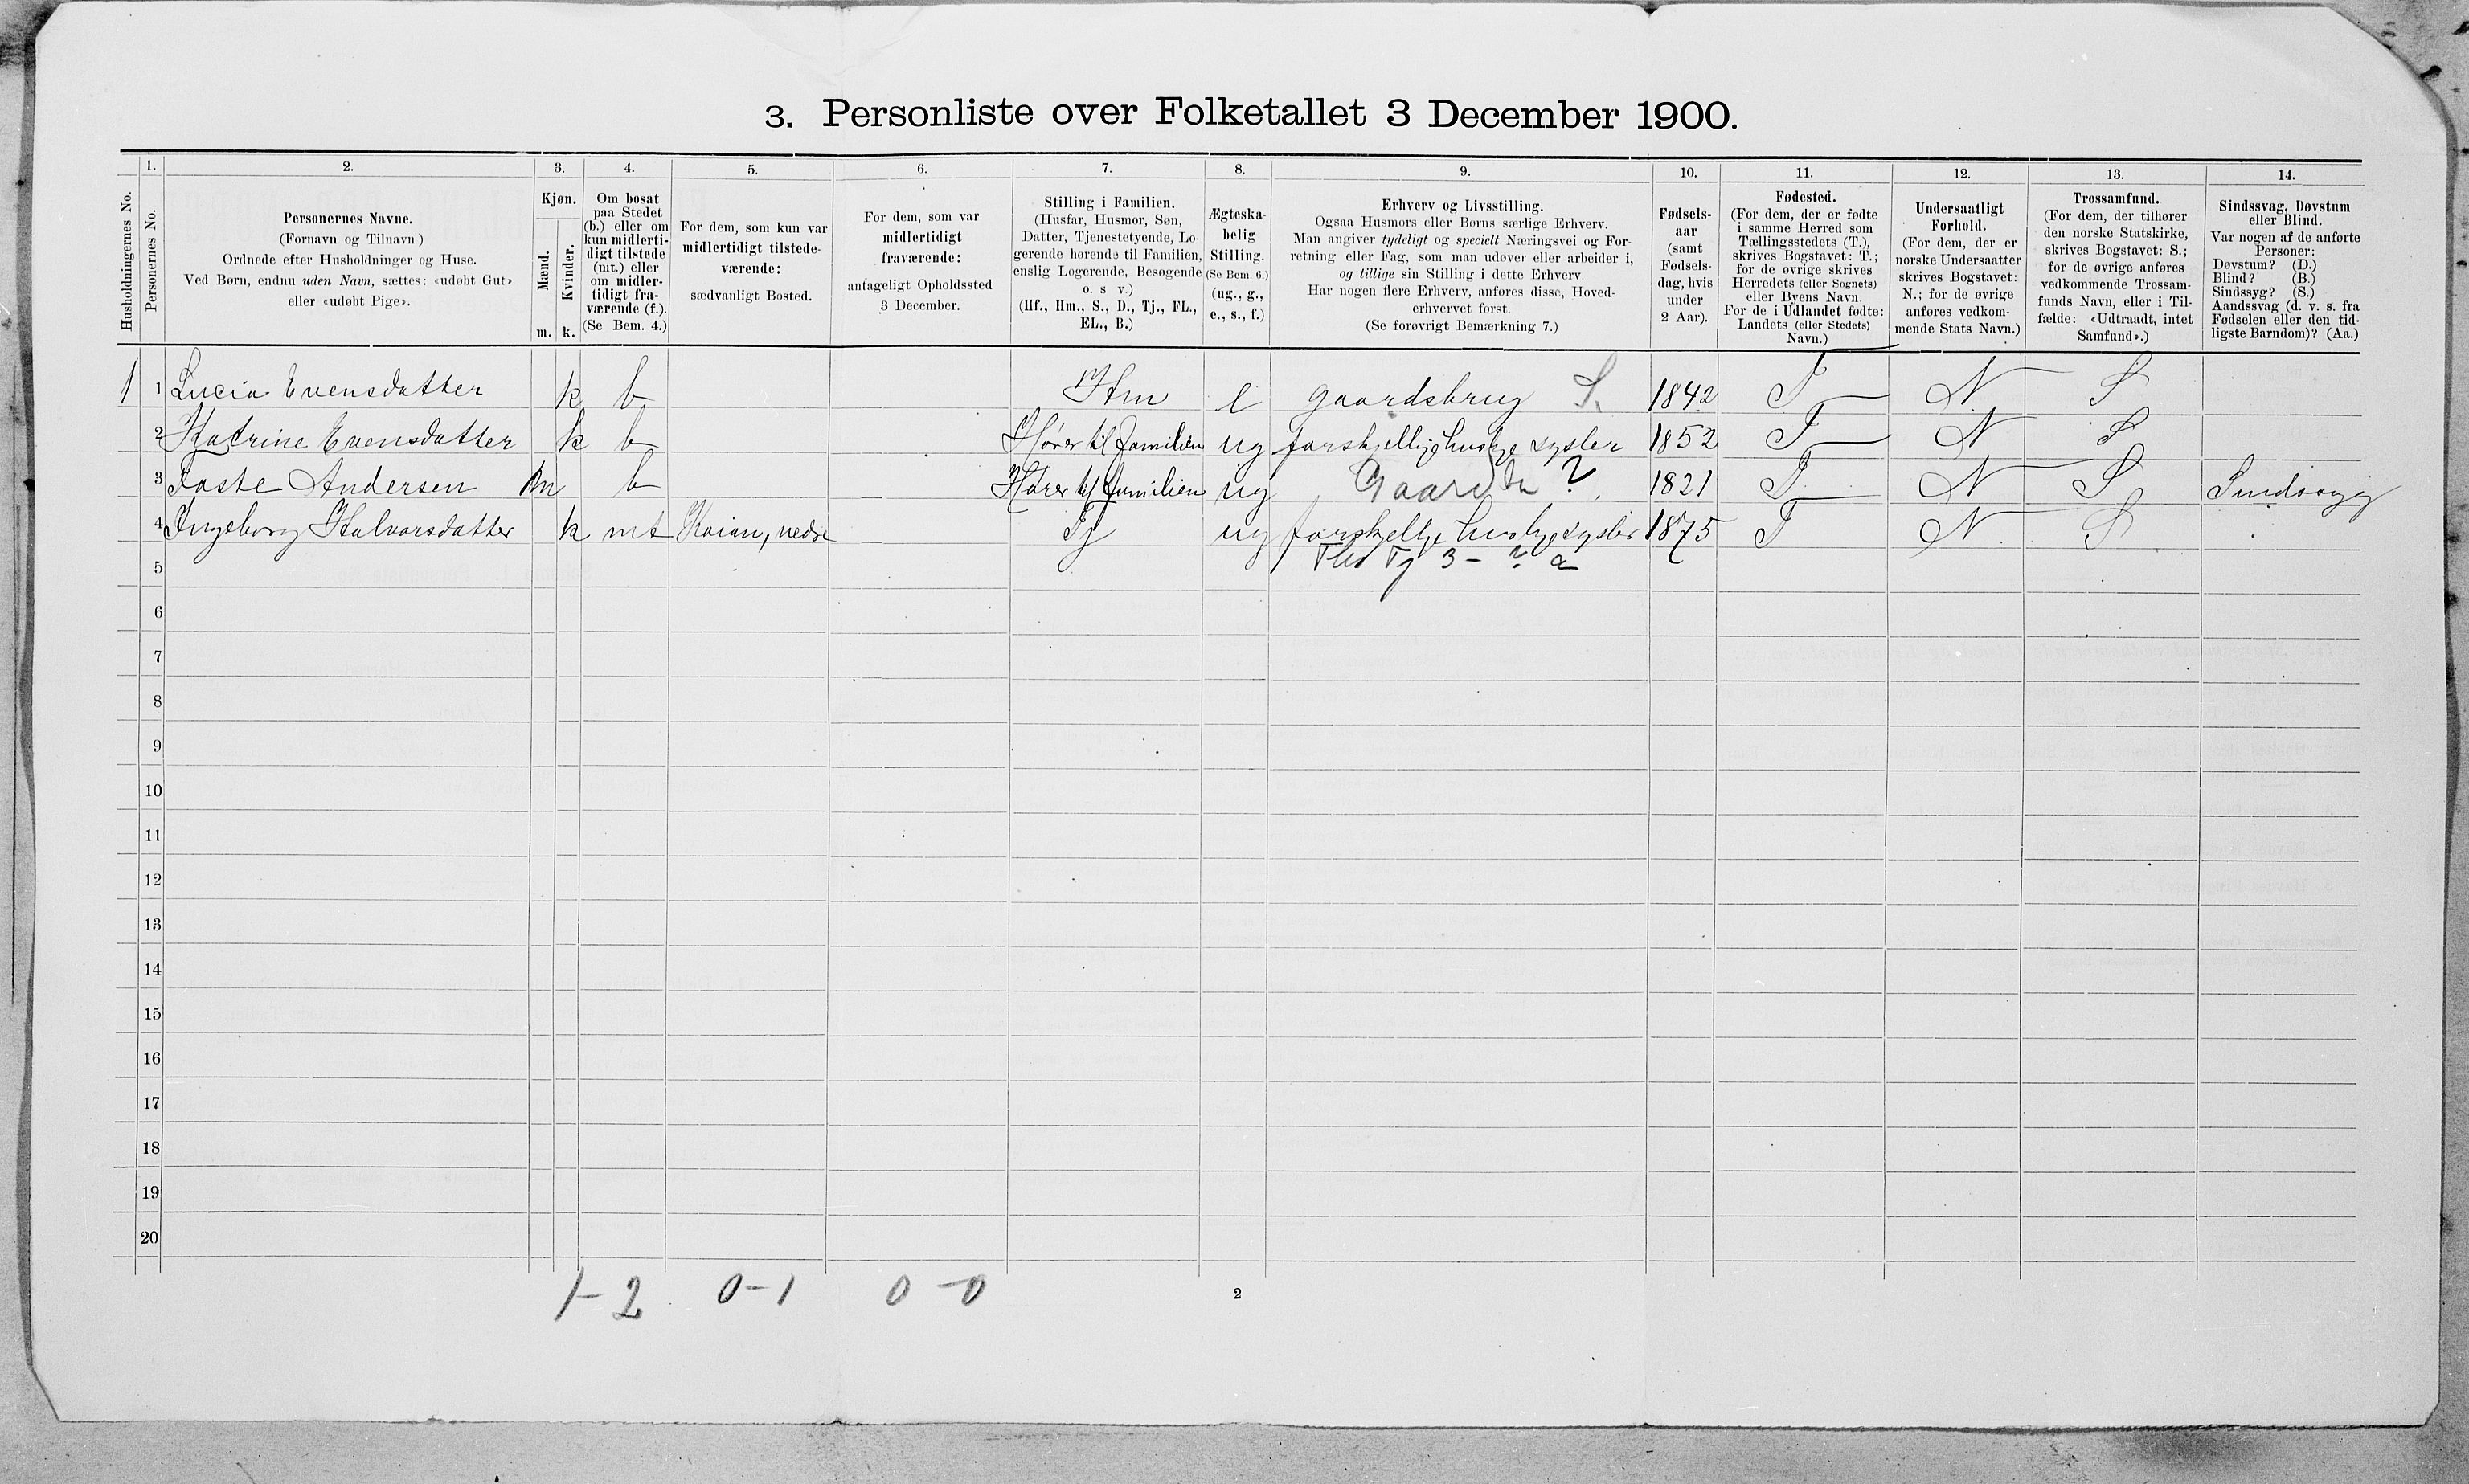 3. Personliste over Folketallet 3 December 1900.
1. 2. 3. 4. 5. 6. 7. 8. 9. 10. 11. 12. 13. 14.
Husholdningernes No.
Personernes No.
Personernes Navne.
(Fornavn og Tilnavn)
Ordnede efter Husholdninger og Huse.
Ved Børn, endnu uden Navn, sættes: «udøbt Gut»
eller «udøbt Pige».
Kjøn.
Mænd.
Kvinder.
m. k.
Om bosat
paa Stedet
(b.) eller om
kun midlerti-
digt tilstede
(mt.) eller
om midler-
tidigt fra-
værende (f.).
(Se Bem. 4.)
For dem, som kun var
midlertidigt tilstede-
værende:
sædvanligt Bosted.
For dem, som var
midlertidigt
fraværende:
antageligt Opholdssted
3 December.
Stilling i Familien.
(Husfar, Husmor, Søn,
Datter, Tjenestetyende, Lo-
gerende hørende til Familien,
enslig Logerende, Besøgende
o. s v.)
(Hf., Hm., S., D., Tj., FL.,
EL., B.)
Ægteska-
belig
Stilling.
(Se Bem. 6.)
(ug., g.,
e., s., f.)
Erhverv og Livsstilling.
Ogsaa Husmors eller Børns særlige Erhverv.
Man angiver tydeligt og specielt Næringsvei og For-
retning eller Fag, som man udøver eller arbeider i,
og tillige sin Stilling i dette Erhverv.
Har nogen flere Erhverv, anføres disse, Hoved-
erhvervet først.
(Se forøvrigt Bemærkning 7.)
Fødsels-
aar
(samt
Fødsels-
dag, hvis
under
2 Aar).
Fødested.
(For dem, der er fødte
i samme Herred som
Tællingsstedets (T.),
skrives Bogstavet: T.;
for de øvrige skrives
Herredets (eller Sognets)
eller Byens Navn.
For de i Udlandet fødte:
Landets (eller Stedets)
Navn.)
Undersaatligt
Forhold.
(For dem, der er
norske Undersaatter
skrives Bogstavet:
N.; for de øvrige
anføres vedkom-
mende Stats Navn.)
Trossamfund.
(For dem, der tilhører
den norske Statskirke,
skrives Bogstavet: S.;
for de øvrige anføres
vedkommende Trossam-
funds Navn, eller i Til-
fælde: «Udtraadt, intet
Samfund».)
Sindssvag, Døvstum
eller Blind.
Var nogen af de anførte
Personer:
Døvstum? (D.)
Blind? (B.)
Sindssyg? (S.)
Aandssvag (d. v. s. fra
Fødselen eller den tid-
ligste Barndom)? (Aa.)
1 1 Lucia Evensdatter k b Hm e gaardsbrug S. 1842 T N S
2 Katrine Evensdatter k b Hører til familien ug forskjellige huslige sysler 1852 T N S
3 Taste Andersen m b Hører til familien ug Gaard ? 1821 T N S Sindssyg
4 Ingeborg Halvorsdatter k mt Kaian, nedre Tj ug 1875 T N S
Tj 3 - ? a
5
6
7
8
9
10
11
12
13
14
15
16
17
18
19
20
1-2 0-1 0-0
2